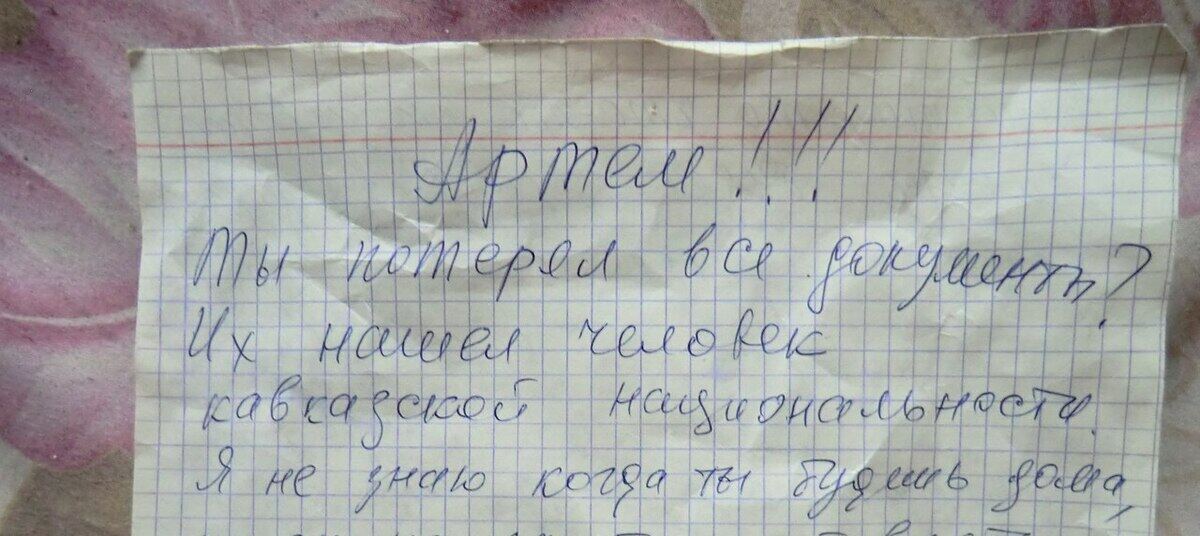 Артем!!!
Ты потерял все документы?
Их нашел человек
кавказской национальности.
Я не знаю когда ты будешь дома,